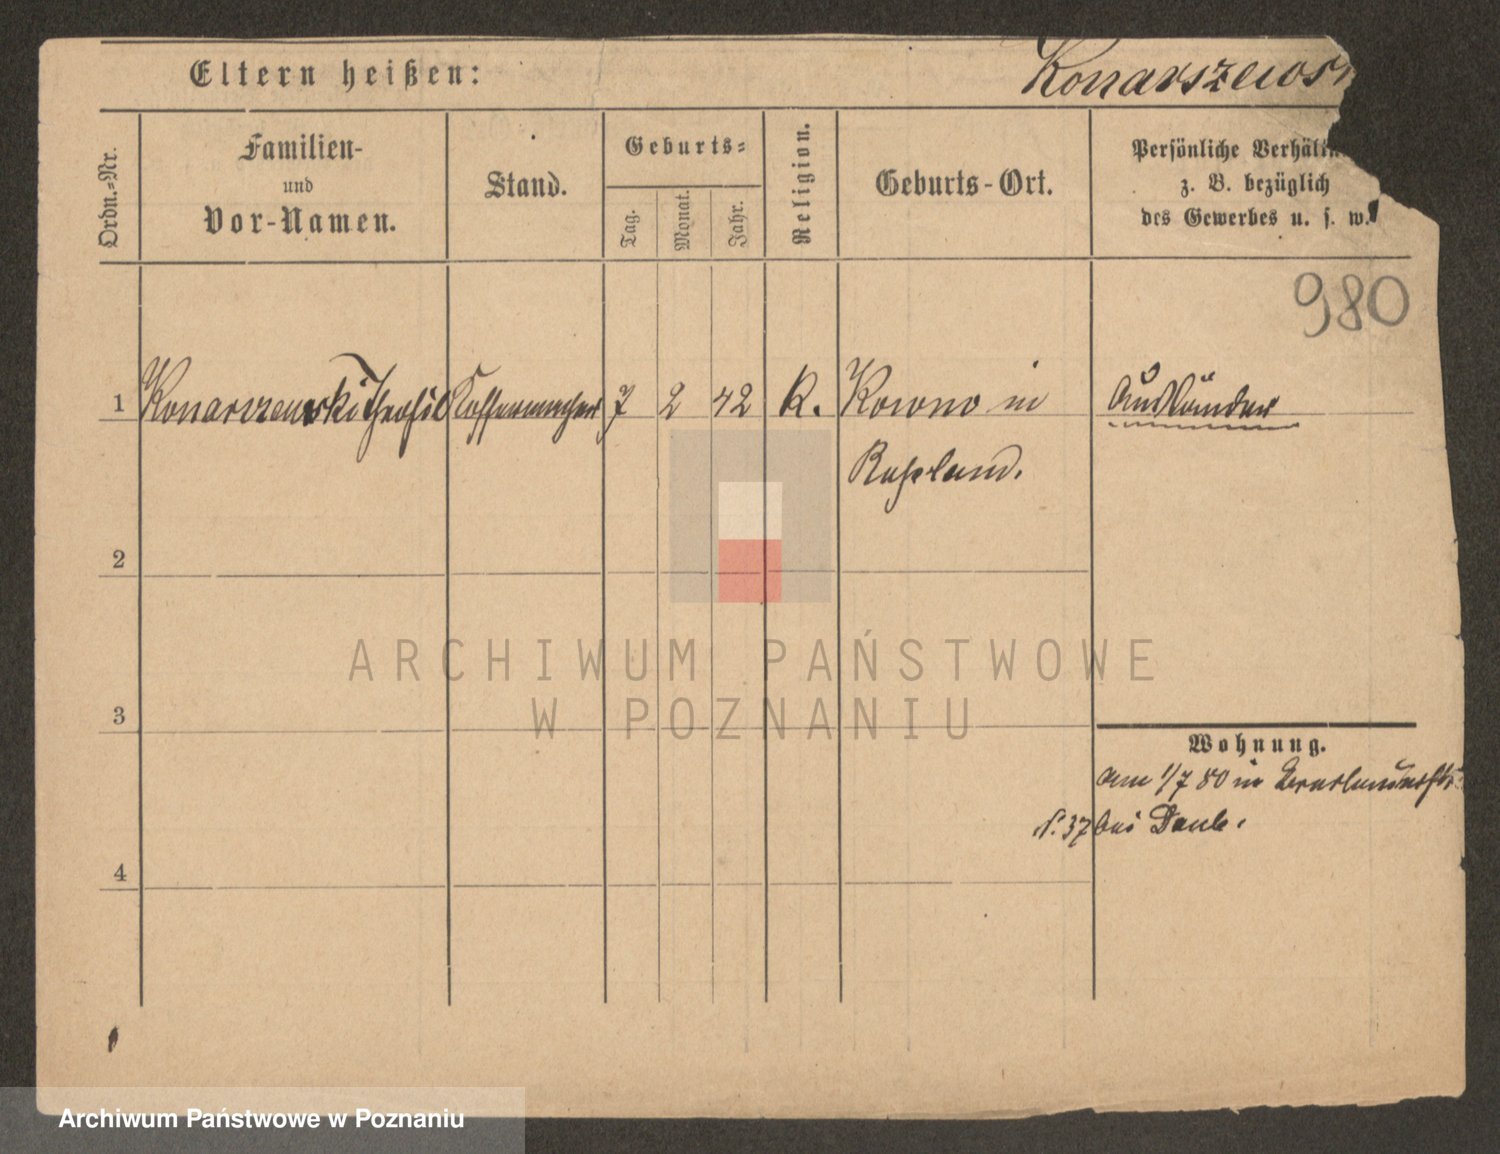 Eltern heißen:
Konarszews
Ordn.-Nr.
Familien-
und
Vor-Namen.
Stand.
Geburts-
Tag.
Monat.
Jahr.
Religion.
Geburts-Ort.
Persönliche Verhält
z. B. bezüglich
des Gewerbes u. s. w.
980
1 Konarszewski Theofil 7 2 42 K. Kowno in Ausländer
Rußland.
2
3
Wohnung.
am 1/7 80 in
N. 37 bei
4
ARCHIWUM PAŃSTWOWE
W POZNANIU
Archiwum Państwowe w Poznaniu